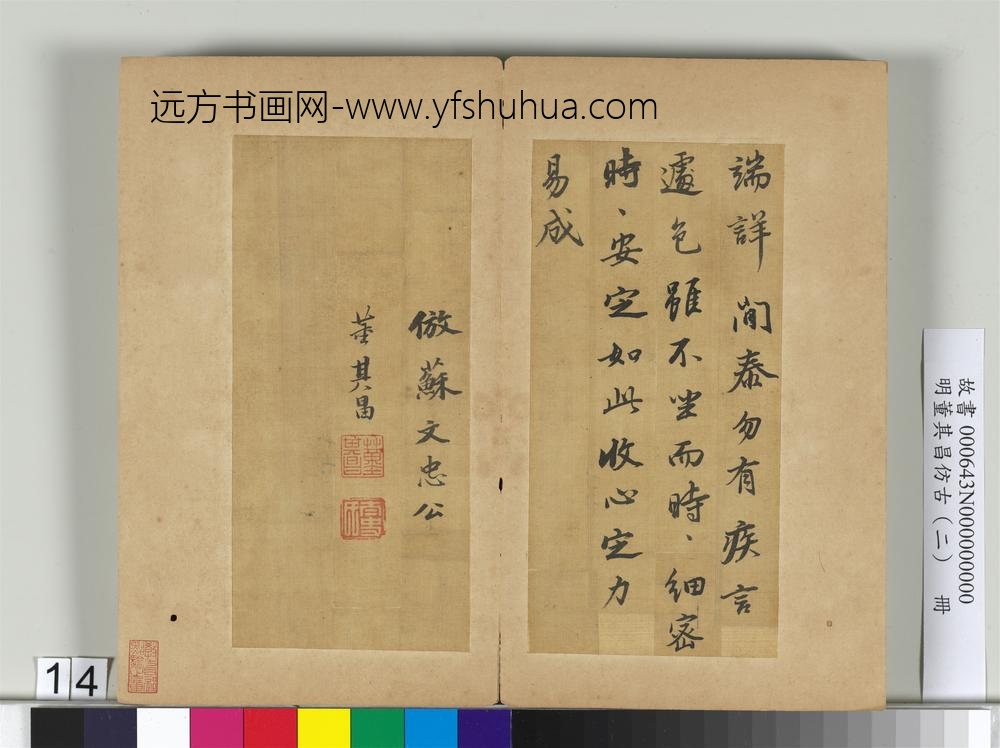 远方书画网-www.yfshuhua.com
端詳閒泰勿有疾言
遽色雖不坐而時、細密
時、安定如此收心定力
易成
倣蘇文忠公
董其昌
故書 000643N000000000
明董其昌仿古（二） 冊
14